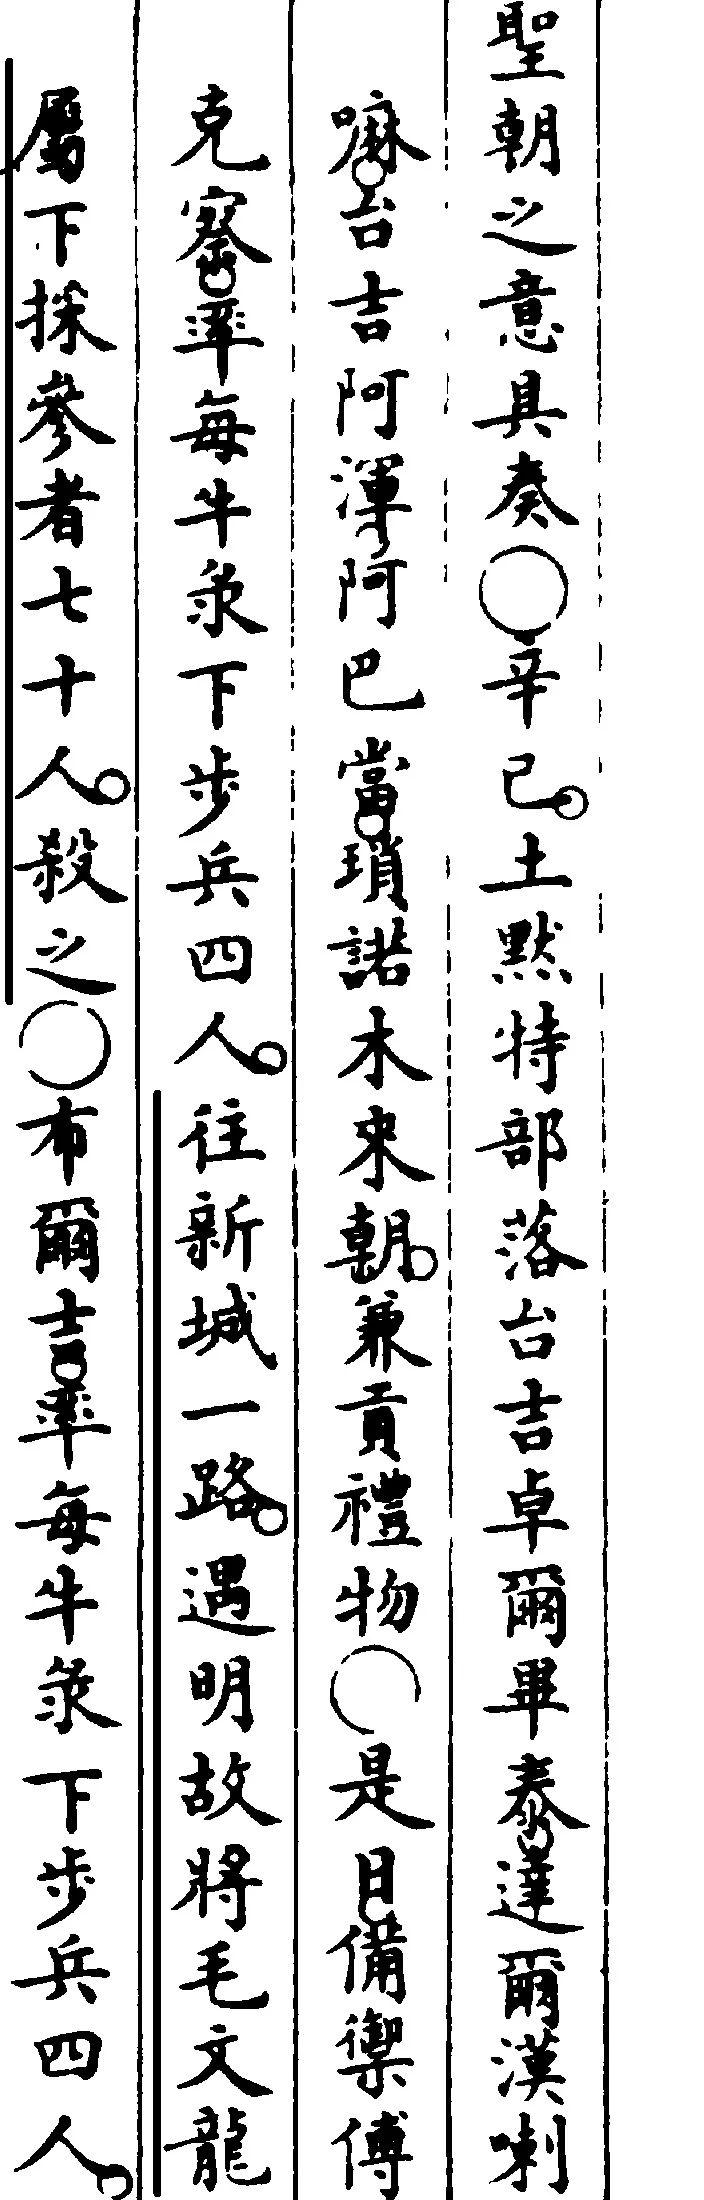 聖朝之意具奏○辛巳土默特部落台吉卓爾畢泰達爾漢喇
嘛台吉阿渾阿巴當瑣諾木來朝兼貢禮物○是日備禦傅
克察率每牛彔下步兵四人往新城一路遇明故將毛文龍
屬下採參者七十人殺之○布爾吉率每牛彔下步兵四人